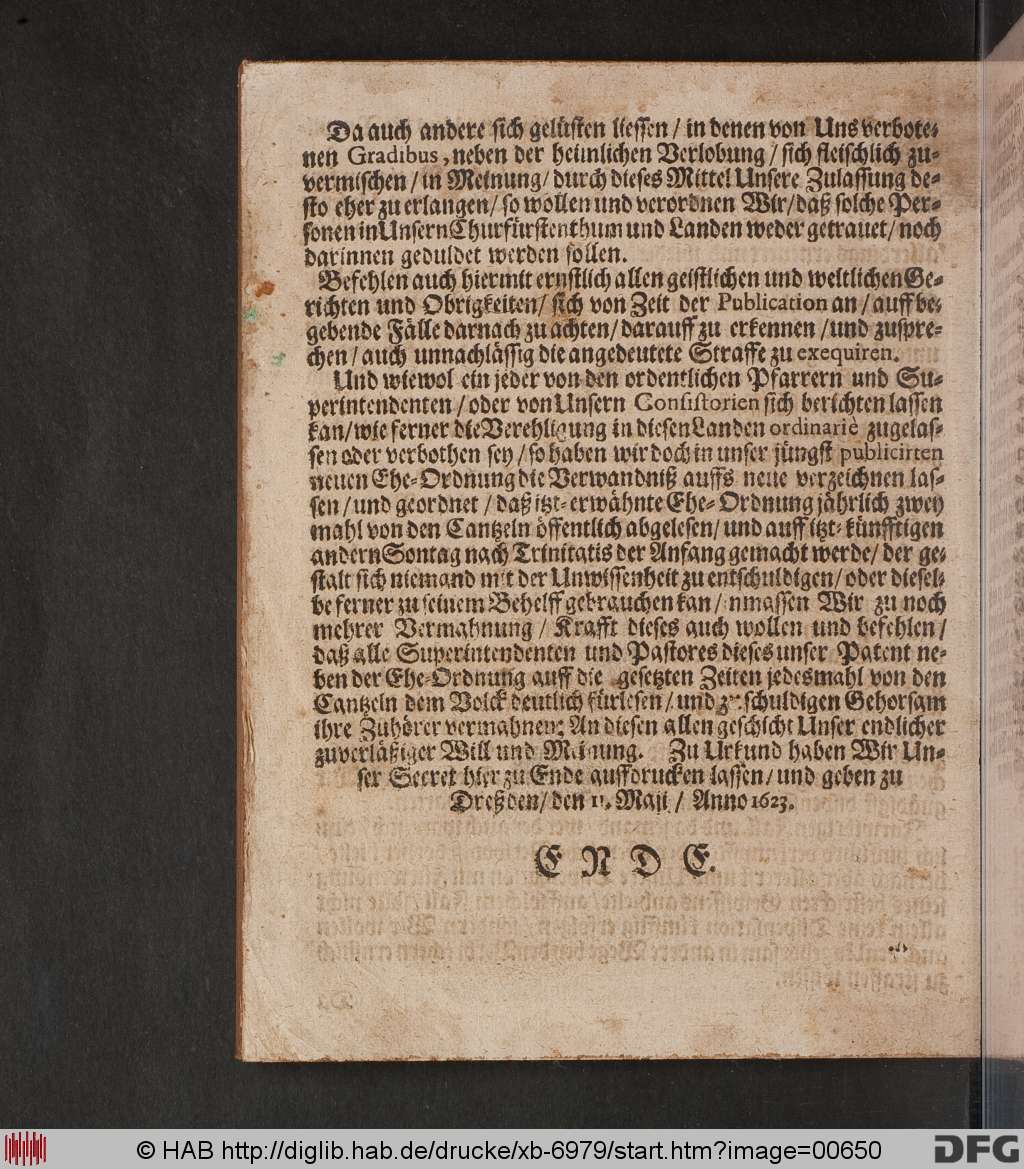 Da auch andere sich gelüsten liessen / in denen von Uns verbote-
nen Gradibus, neben der heimlichen Verlobung / sich fleischlich zu-
vermischen / in Meinung / durch dieses Mittel Unsere Zulassung de-
sto eher zu erlangen / so wollen und verordnen Wir / daß solche Per-
sonen in Unsern Churfürstenthum und Landen weder getrauet / noch
darinnen geduldet werden sollen.
Befehlen auch hiermit ernstlich allen geistlichen und weltlichen Ge-
richten und Obrigkeiten / sich von Zeit der Publication an / auff be-
gebende Fälle darnach zu achten / darauff zu erkennen / und zuspre-
chen / auch unnachlässig die angedeutete Straffe zu exequiren.
Und wiewol ein jeder von den ordentlichen Pfarrern und Su-
perintendenten / oder von Unsern Consistorien sich berichten lassen
kan / wie ferner die Verehligung in diesen Landen ordinariè zugelas-
sen oder verbothen sey / so haben wir doch in unser jüngst publicirten
neuen Ehe-Ordnung die Verwandniß auffs neue verzeichnen las-
sen / und geordnet / daß itzt-erwähnte Ehe-Ordnung jährlich zwey
mahl von den Cantzeln öffentlich abgelesen / und auff itzt-künfftigen
andern Sontag nach Trinitatis der Anfang gemacht werde / der ge-
stalt sich niemand mit der Unwissenheit zu entschuldigen / oder diesel-
be ferner zu seinem Behelff gebrauchen kan / inmassen Wir zu noch
mehrer Vermahnung / Krafft dieses auch wollen und befehlen /
daß alle Superintendenten und Pastores dieses unser Patent ne-
ben der Ehe-Ordnung auff die gesetzten Zeiten jedesmahl von den
Cantzeln dem Volck deutlich fürlesen / und zu schuldigen Gehorsam
ihre Zuhörer vermahnen: An diesen allen geschicht Unser endlicher
zuverläßiger Will und Meinung. Zu Urkund haben Wir Un-
ser Secret hier zu Ende auffdrucken lassen / und geben zu
Dreßden / den Maji / Anno 1623.
ENDE.
© HAB http://diglib.hab.de/drucke/xb-6979/start.htm?image=00650
DFG